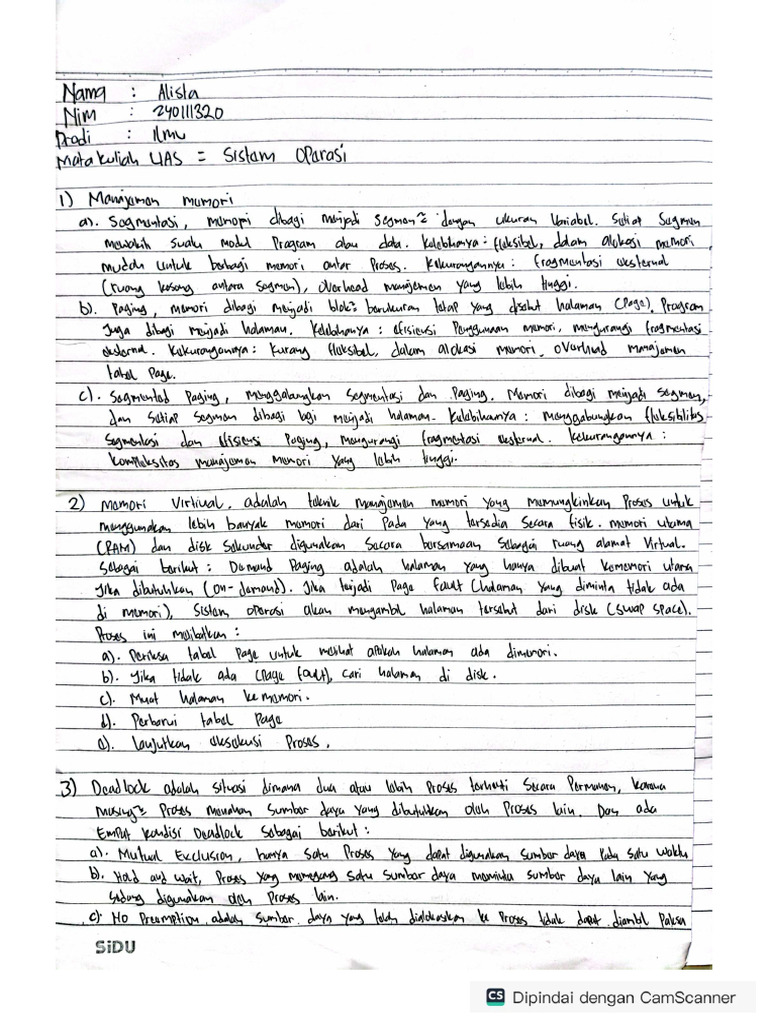 Nama : Alista
Nim : 240111320
Prodi : Ilmu
Mata kuliah UAS = Sistem Operasi
1) Manajemen memori
a). Segmentasi, memori dibagi menjadi segmen² dengan ukuran Variabel. Setiap Segmen
mewakili suatu modul Program atau data. Kelebihannya : fleksibel, dalam alokasi memori,
mudah untuk berbagi memori antar Proses. Kekurangannya : fragmentasi eksternal
(ruang kosong antara segmen), overhead manajemen yang lebih tinggi.
b). Paging, memori dibagi menjadi blok² berukuran tetap yang disebut halaman (Page). Program
Juga dibagi menjadi halaman. Kelebihanya : efisiensi Penggunaan memori, mengurangi fragmentasi
eksternal. Kekurangannya : Kurang fleksibel, dalam alokasi memori, overhead manajemen
tabel Page.
c). Segmented Paging, menggabungkan Segmentasi dan Paging. Memori dibagi menjadi segmen,
dan Setiap Segmen dibagi lagi menjadi halaman. Kelebihannya : menggabungkan fleksibilitas
Segmentasi dan efisiensi Paging, mengurangi fragmentasi eksternal. Kekurangannya :
Kompleksitas manajemen Memori yang lebih tinggi.
2) Memori Virtiual, adalah teknik manajemen memori yang memungkinkan Proses untuk
menggunakan lebih banyak memori dari Pada yang tersedia Secara fisik. memori utama
(RAM) dan disk Sekunder digunakan Secara bersamaan Sebagai ruang alamat Virtual.
Sebagai berikut : Demand Paging adalah halaman yang hanya dibuat kememori utama
Jika dibutuhkan (on-demand). Jika terjadi Page fault (halaman yang diminta tidak ada
di memori), Sistem operasi akan mengambil halaman tersebut dari disk (swap space).
Proses ini melibatkan :
a). Periksa tabel Page untuk melihat apakah halaman ada dimemori.
b). Jika tidak ada (Page fault), cari halaman di disk.
c). Muat halaman ke memori.
d). Perbarui tabel Page
e). lanjutkan eksekusi Proses.
3) Deadlock adalah situasi dimana dua atau lebih Proses terhenti Secara Permanen, karena
masing² Proses menahan Sumber daya yang dibutuhkan oleh Proses lain. Dan ada
Empat kondisi Deadlock Sebagai berikut :
a). Mutual Exclusion, hanya satu Proses yang dapat digunakan sumber daya Pada satu waktu
b). Hold and wait, Proses yang memegang satu sumber daya meminta sumber daya lain yang
Sedang digunakan oleh Proses lain.
c). No Preemption adalah Sumber daya yang telah dialokasikan ke Proses tidak dapat diambil Paksa
SiDU
CS Dipindai dengan CamScanner